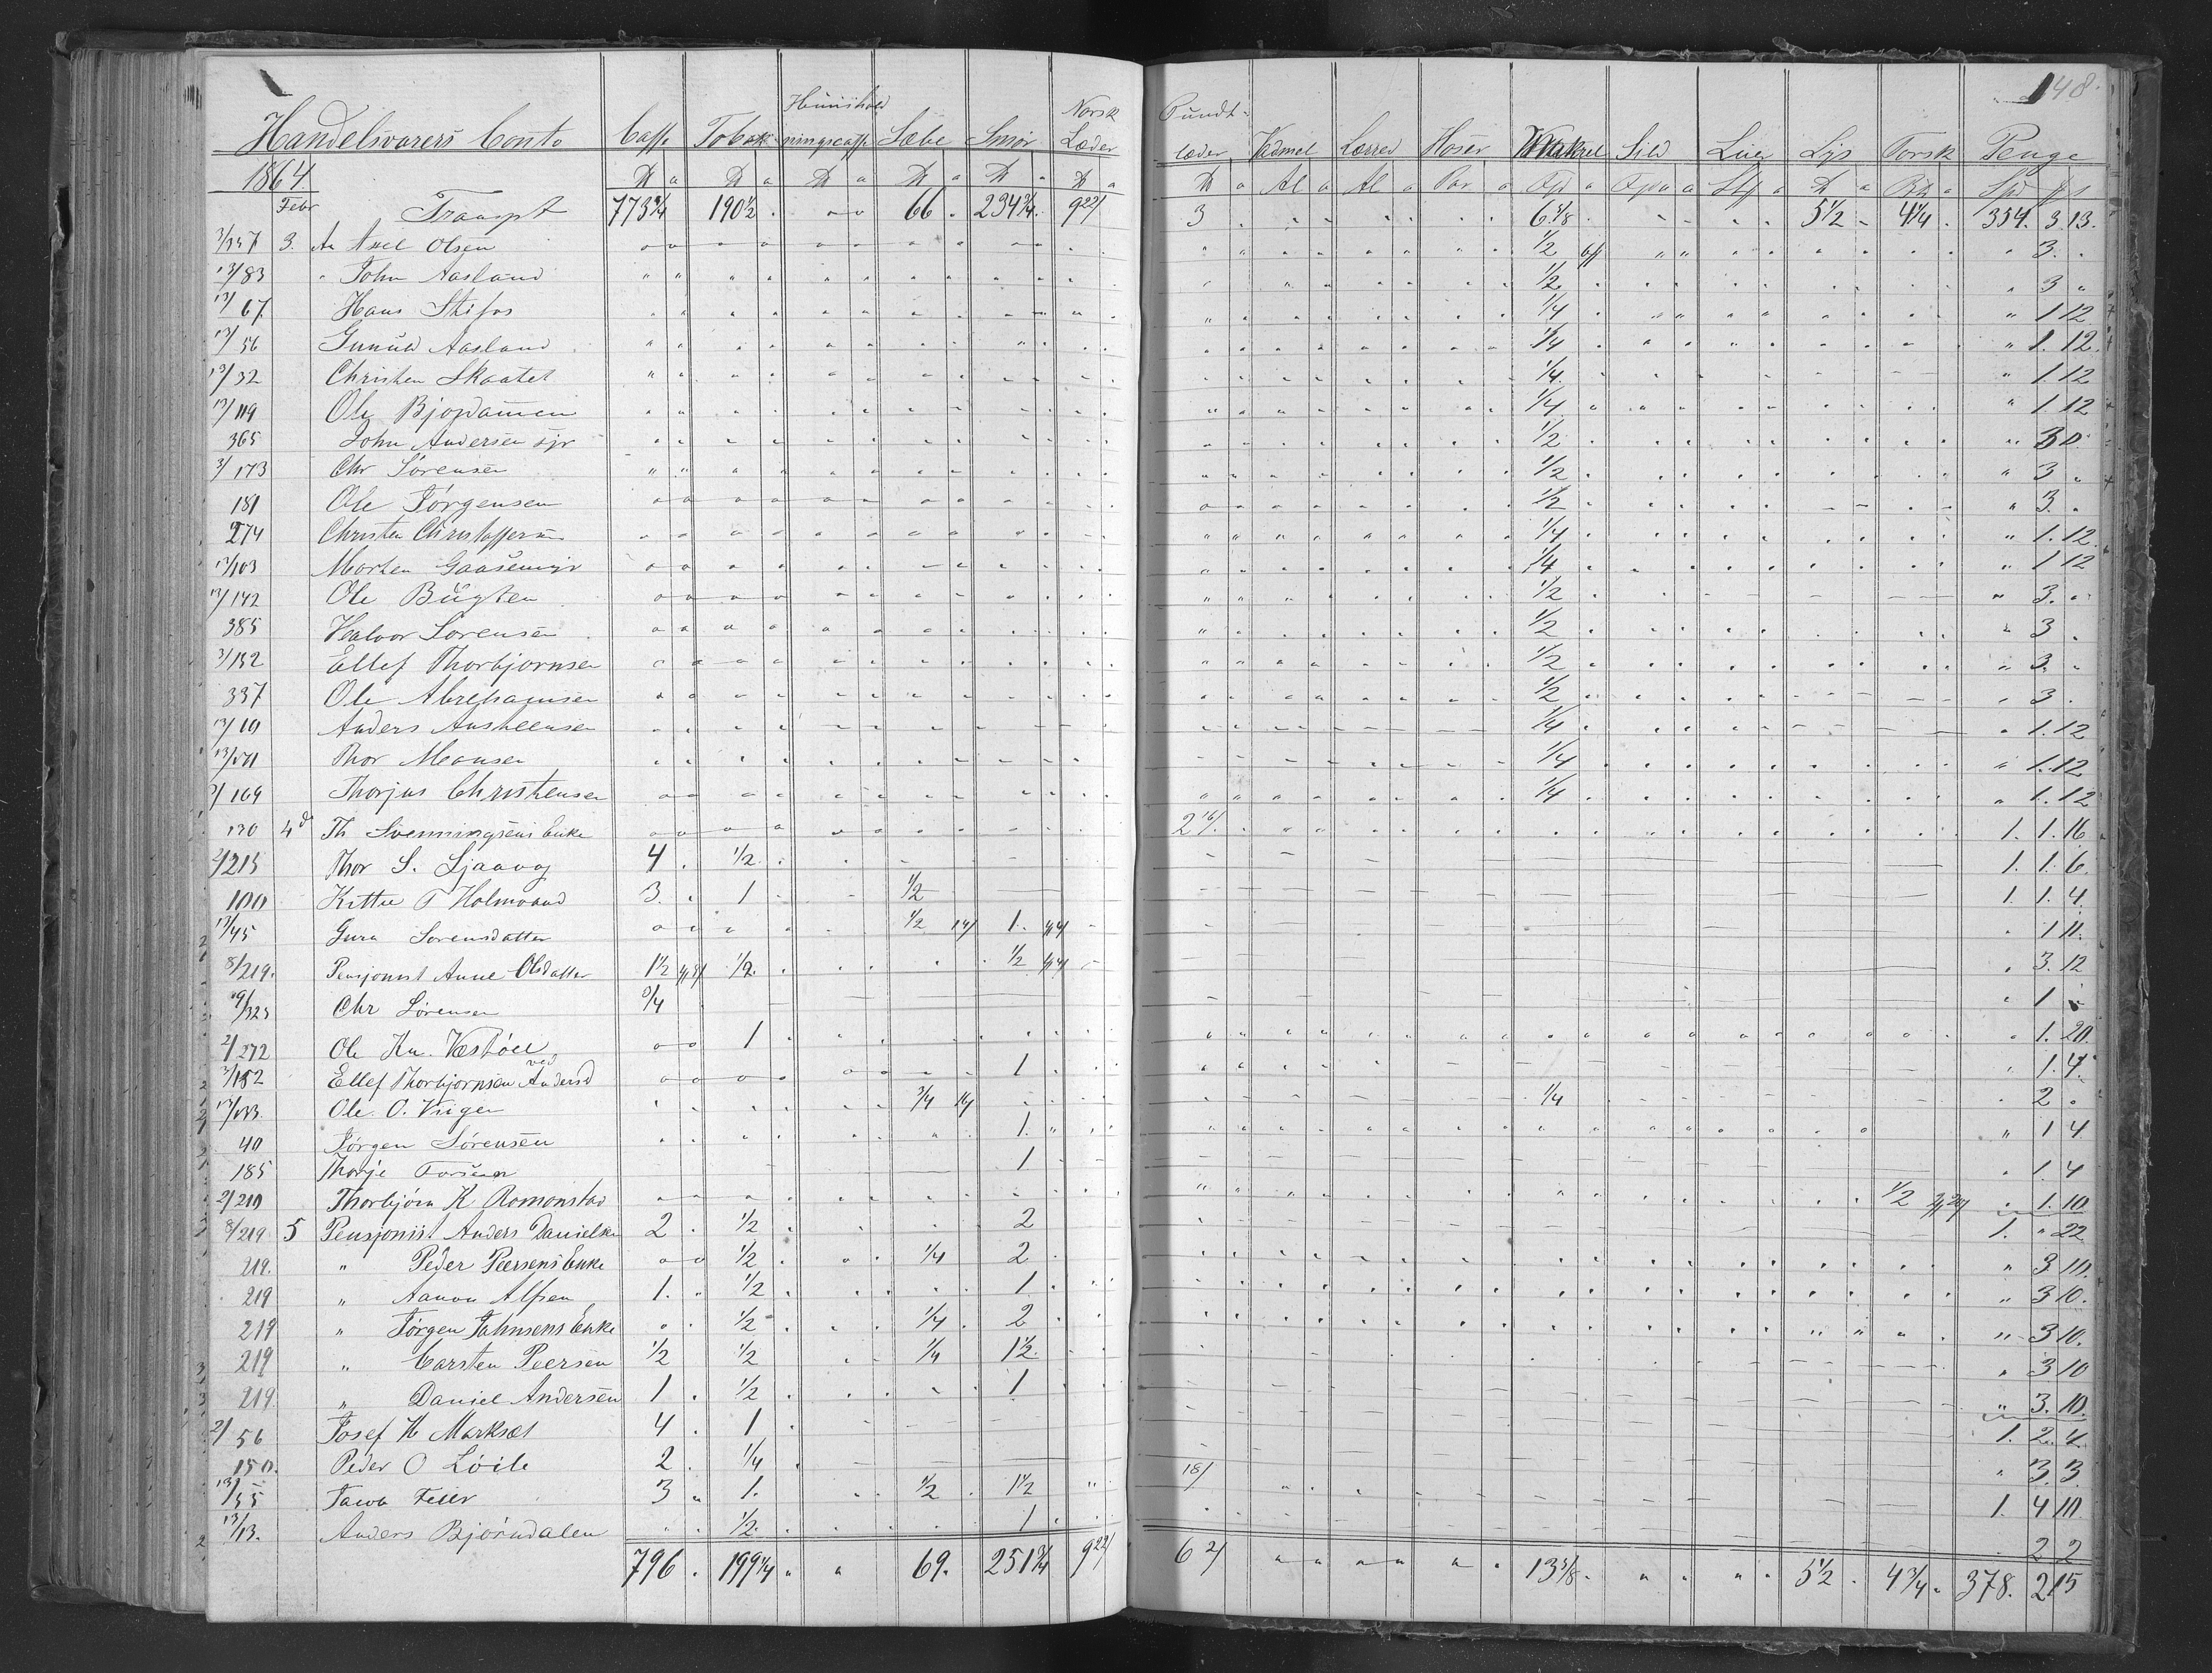 148.
Handelsvarers Conto Caffe Tobak Huusholdningscaffe Sæbe Smør Norsk Læder Pundtlæder Vadmel Lærred Hoser Makrel Sild Luer Lys Torsk Penge
1864. ℔ a ℔ a ℔ a ℔ a ℔ a ℔ a ℔ a Al a Al a Par a Fjd a a a ℔ a a Spd
Febr Transpt 773 3/4 190 1/2 66 234 3/4 9 22/ 3 6 5/8 5 1/2 4 1/4 354. 3 13.
3/157 3. An Axel Olsen 1/2 3.
13/83 " John Aasland 1/2 3 "
13/67 Hans Stifos 1/4 " 1 12
13/56 Gunuld Aasland 1/4 " 1. 12.
13/32 Christen Skaatet 1/4 " 1. 12
13/119 Ole Bjordammen 1/4 " 1. 12
365 John Andersen 1/2 " 3
3/173 Chr Sørensen 1/2 " 3 "
181 Ole Jørgensen 1/2 " 3. "
274 Christen Christoffersen 1/4 " 1. 12.
13/103 Morten Gaasemyr 1/4 " 1 12
13/142 Ole Bugten 1/2 " 3. "
385 Healvor Sørensen 1/2 " 3 "
3/152 Ellef Thorbjørnsen 1/2 " 3. "
337 Ole Abrehamsen 1/2 " 3 .
13/10 Anders Austeensen 1/4 " 1. 12
Thor Monsen 1/4 " 1. 12
/169 Thorjus Christensen 1/4 " 1. 12
130 4 de Th Svenningsens Enke 2 16/ 1. 1. 16
2/215 Thor S. Ljaavag 4 . 1/2 1. 1. 6.
100 Kittel T Holmvand 3. 1 1/2 1. 1. 4.
13/45 Gura Sørensdatter 1/2 1. " 1 11.
8/219. Pensjonist Anne Olsdatter 1 1/2 1/2 1/2 " 3. 12
9/325 Chr Sørensen 3/4 " 1
2/272 Ole Kn. Vestøel 1 " 1. 20.
3/152 Ellef Thorbjørnsen ved Anders 1 " 1. 4.
13/133. Ole O. Viigen 3/4 1/4 2 "
40 Jørgen Sørensen 1. " 1 4
185 Thorje 1 " 1. 4
2/210 Thorbjørn K Romonstad 1/2 " 1. 10
8/219 5 Pensjonist Anders Danielsen 2 . 1/2 2 1. " 22
219. " Peder Peersens Enke 1/2 1/4 2 " 3 10.
219 " Aanon Alfsen 1. 1/2 1 " 3 10.
219 " Jørgen Jahnsens Enke 1/2 1/4 2 " 3 10.
219 " Carsten Peersen 1/2 1/2 1/4 1 1/2 " 3 10
219. " Daniel Andersen 1 1/2 1 " 3. 10.
2/56 Josef H Markset 4 . 1 1. 2. 4.
150. Peder O Løite 2 . 1/4 " 3. 3
13/55 Jacob Feier 3 " 1. 1/2 1 1/2 18/ 1. 4 10.
13/13. Anders Bjørndalen 1/2 1 2 2
796 . 199 1/4 69. 251 3/4 9 22/ 6 2/ 13 5/8 5 1/2 4 3/4 378. 2 15